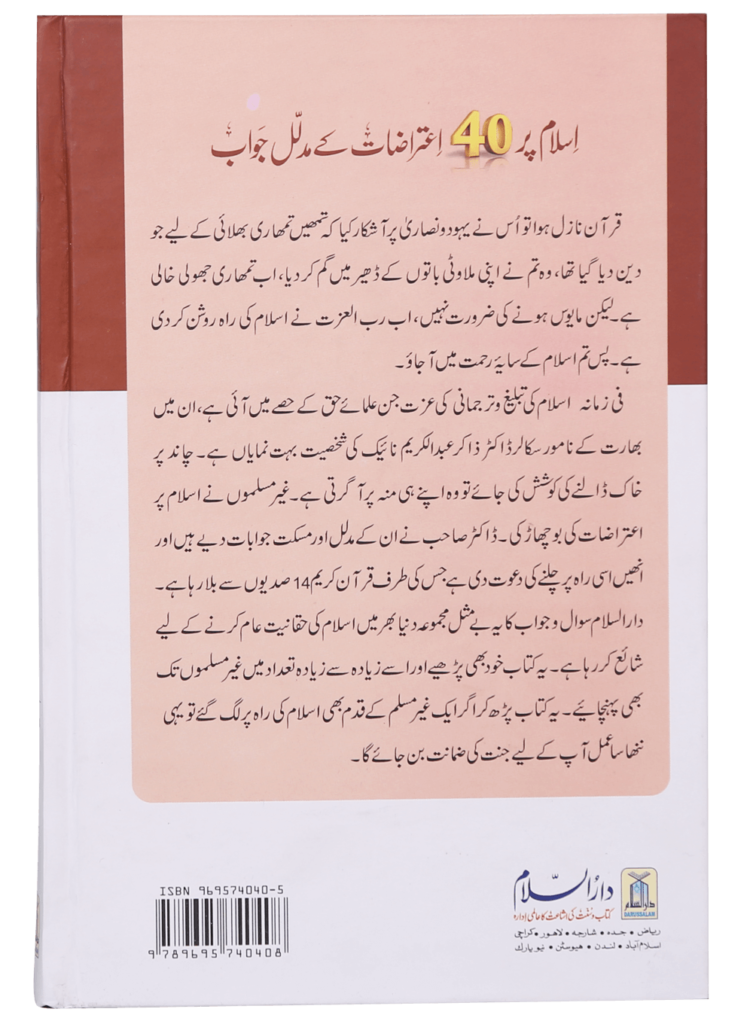 اِسلام پر 40 اِعتراضات کے مدلّل جَواب
قرآن نازل ہوا تو اُس نے یہود و نصاریٰ پر آشکار کیا کہ تمھیں تمھاری بھلائی کے لیے جو
دین دیا گیا تھا، وہ تم نے اپنی ملاوٹی باتوں کے ڈھیر میں گم کر دیا، اب تمھاری جھولی خالی
ہے۔ لیکن مایوس ہونے کی ضرورت نہیں، اب رب العزت نے اسلام کی راہ روشن کر دی
ہے۔ پس تم اسلام کے سایۂ رحمت میں آ جاؤ۔
فی زمانہ اسلام کی تبلیغ و ترجمانی کی عزت جن علمائے حق کے حصے میں آئی ہے، ان میں
بھارت کے نامور سکالر ڈاکٹر ذاکر عبدالکریم نائیک کی شخصیت بہت نمایاں ہے۔ چاند پر
خاک ڈالنے کی کوشش کی جائے تو وہ اپنے ہی منہ پر آ گرتی ہے۔ غیر مسلموں نے اسلام پر
اعتراضات کی بوچھاڑ کی۔ ڈاکٹر صاحب نے ان کے مدلل اور مسکت جوابات دیے ہیں اور
انھیں اسی راہ پر چلنے کی دعوت دی ہے جس کی طرف قرآن کریم 14 صدیوں سے بلا رہا ہے۔
دارالسلام سوال و جواب کا یہ بے مثل مجموعہ دنیا بھر میں اسلام کی حقانیت عام کرنے کے لیے
شائع کر رہا ہے۔ یہ کتاب خود بھی پڑھیے اور اسے زیادہ سے زیادہ تعداد میں غیر مسلموں تک
بھی پہنچائیے۔ یہ کتاب پڑھ کر اگر ایک غیر مسلم کے قدم بھی اسلام کی راہ پر لگ گئے تو یہی
ننھا سا عمل آپ کے لیے جنت کی ضمانت بن جائے گا۔
ISBN 969574040-5
9 789695 740408
دارُالسّلام
کتاب و سُنّت کی اشاعت کا عالمی ادارہ
ریاض • جدہ • شارجہ • لاہور • کراچی
اسلام آباد • لندن • ہیوسٹن • نیو یارک
دارالسلام
DARUSSALAM